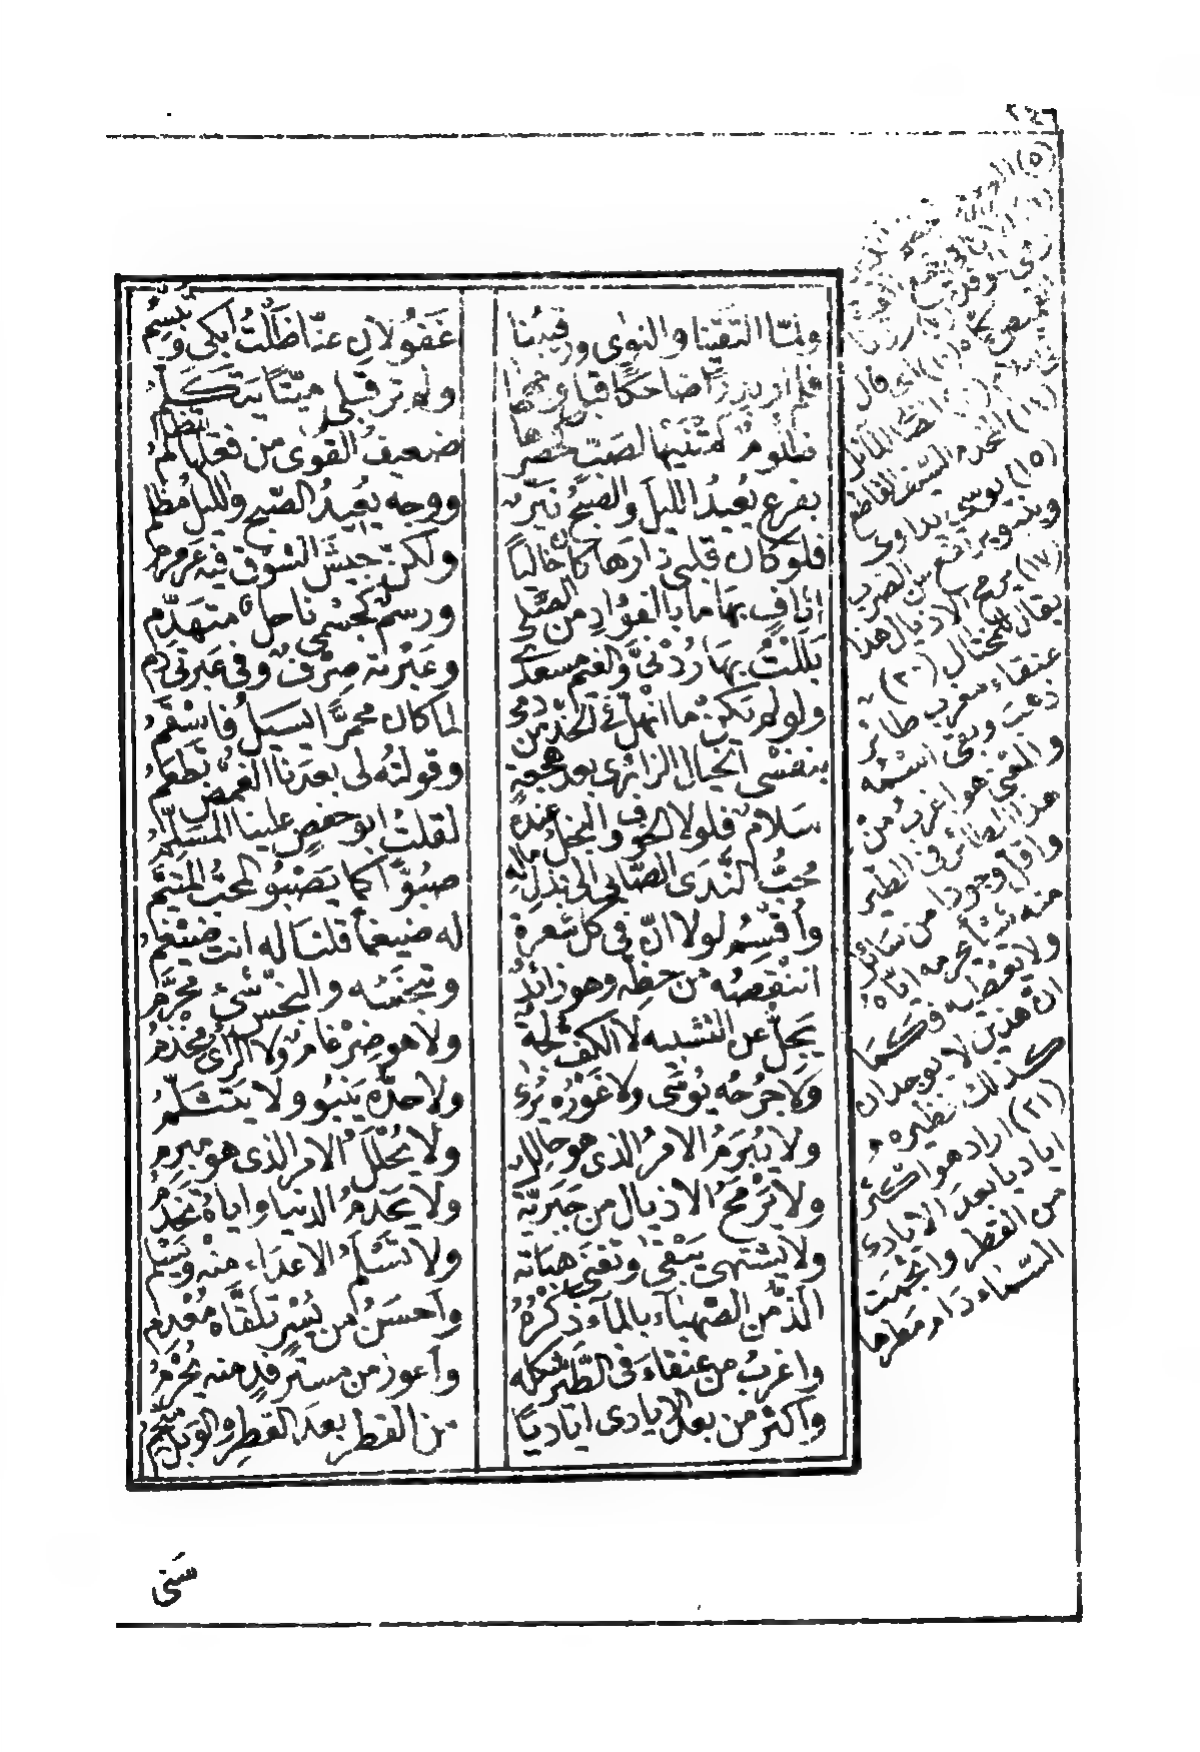 ٢٤٦
ولمّا التقينا والنوى ورقيبُنا غَفولانِ عنّا ظَلْتُ أبكي وتبسم
فلم أر بدرًا ضاحكًا قبل وجهها ولم تر قبلي ميّتًا يتكلّم
ظلومٌ كمتنيها لصبّ كخصرها ضعيفِ القوى من فعلها يتظلّم
بفرعٍ يعيدُ الليلَ والصبحُ نيّرٌ ووجه يُعيدُ الصّبح والليل مظلم
فلو كان قلبي دارَها كان خاليًا ولكنّ جيشَ الشوق فيه عرمرم
اثافٍ بها ما بالفؤادِ من الصّلى ورسمٌ كجسمي ناحلٌ متهدّم
بَلَلْتُ بها رُدْنَيَّ والغيم مسعدي وعَبْرته صِرْفٌ وفي عبرتي دم
ولو لم يكن ما انهلّ في الخدّ من دمي لما كان محمرًّا يسيلُ فاسْقَمُ
بنفسي الخيال الزائري بعد هجعةٍ وقولته لي بعدنا الغمض تَطْعَمُ
سَلامٌ فلولا الخوف والبخل عنده لقلتُ ابو حفصٍ علينا المسلّمُ
مُحبُّ النّدى الصّابي الى بذل ماله صبُوًّا كما يَصْبُو المحبّ المتيّم
وأقسم لولا انّ في كل شعرة له ضيغمًا قلنا له انت ضيغم
اننقصه من حظّه وهو زائدٌ ونبخسه والبخس شيء محرّم
يجلّ عن التشبيه لا الكف لجّة ولا هو ضِرغامٌ ولا الرأي مِخذمُ
ولا جرحُه يُوسَى ولا غَوْرُه يُرَى ولا حدّه يَنبُو ولا يتثلّمُ
ولا يُبْرَمُ الامرُ الذي هو حالل ولا يُحْلَلُ الامر الذي هو مبرم
ولا يَرْمَحُ الاذيالَ من جَبَريّة ولا يخدمُ الدنيا واياهُ تخدم
ولا يشتهي يَبْقى وتَفنى هباته ولا تَسْلَمُ الاعداء منه ويَسْلَم
الذّ من الصّهباء بالماء ذكرُهُ وأحسَنُ من يُسْرٍ تلقّاه مُعْدِم
واغربُ من عنقاءَ في الطّير شكله وأعوز من مسترفدٍ منه يُحْرَم
وأكثرُ من بعد الايادي اياديًا من القطر بعدَ القطرِ والوَبْل مثجم
(٥)
(١٠) اي قال
(١٤) المخذم السّيف القاطع
(١٥) يوسى يداوى
(١٧) يرمح الاذيال هذا
يقال للمختال (٢٠)
عنقاء مغرب طائر
ذهب وبقي اسمه
والمعنى هو اغرب من
هذا الطائر في الطير
واقل وجودا من سائل
منه شيئا يحرمه ايّاه
ولا يعطيه فكما
انّ هذين لا يوجدان
كذلك نظيره
(٢١) اراد هو اكثر
اياديا بعد الايادي
من القطر واثجمت
السّماء دام مطرها
سَنى